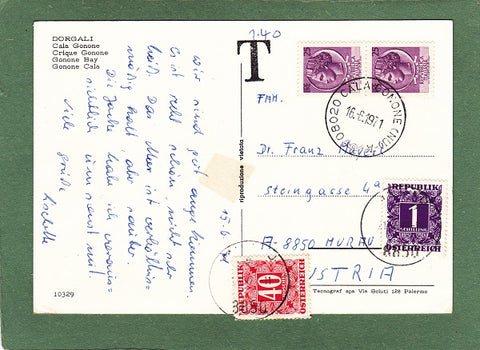 DORGALI
Cala Gonone
Crique Gonone
Gonone Bay
Gonone Cala
wir sind gut angekommen.
Es ist recht schön, nicht sehr
heiß. Das Meer ist verhältnis-
mäßig kalt, aber sauber.
Die Jacke habe ich voraus-
sichtlich umsonst mit.
Viele Grüße
10329
riproduzione vietata
T
1.40
FAM.
Dr. Franz
Steingasse 4a
A-8850 MURAU
AUSTRIA
08020 CALA GONONE (NU)
16.6.1971
REPUBLIK
1
ÖSTERREICH
8850
REPUBLIK
40
ÖSTERREICH
8850
15.6.
Tecnograf spa Via Goluti 128 Palermo